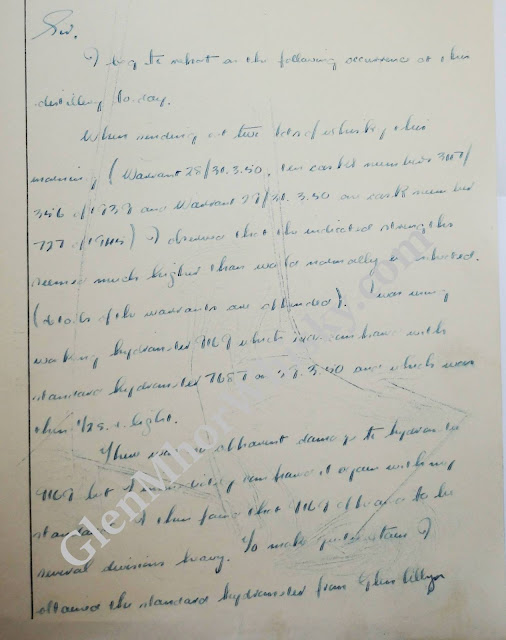 Sir,
I beg to report on the following occurrence at this
distillery to-day.
When sending out two lots of whisky this
morning (Warrant 28/30.3.50, ten casks numbers
of 1938 and Warrant 29/30.3.50 one cask number
727 of ) I observed that the indicated strengths
seemed much higher than would normally be expected.
(Details of the warrants are appended). I was using
working hydrometer which I had compared with
standard hydrometer on 27.3.50 and which was
then light.
There was no apparent damage to hydrometer
but I immediately compared it again with my
standard. I then found that appeared to be
several divisions heavy. To make quite certain I
obtained the standard hydrometer from Glen Albyn
GlenMhorWhisky.com